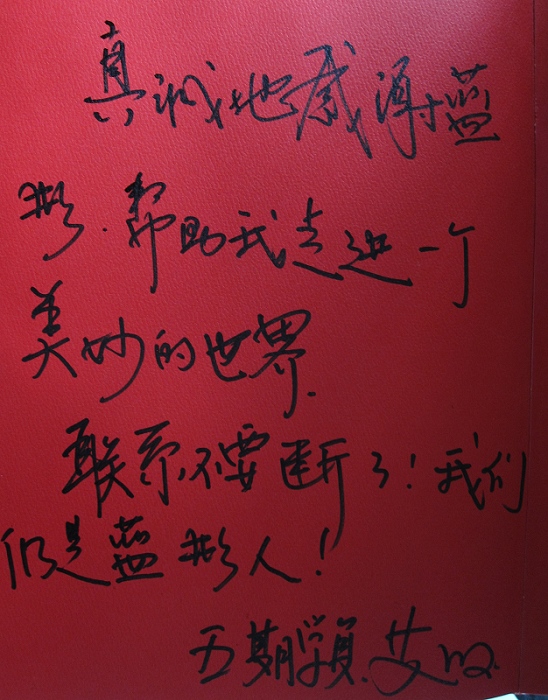 真诚地感谢蓝
鹦.帮助我走进一个
美妙的世界.
联系不要断了!我们
们是蓝鹦人!
五期学员.艾